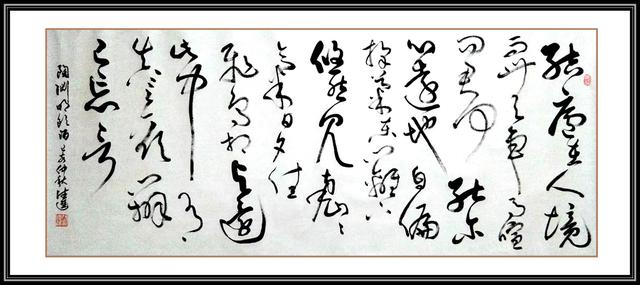 結廬在人境
而無車馬喧
問君何能尔
心遠地自偏
採菊東籬下
悠然見南山々
氣日夕佳
飛鳥相與還
此中有
真意欲辨
已忘言
陶淵明飲酒 仲秋